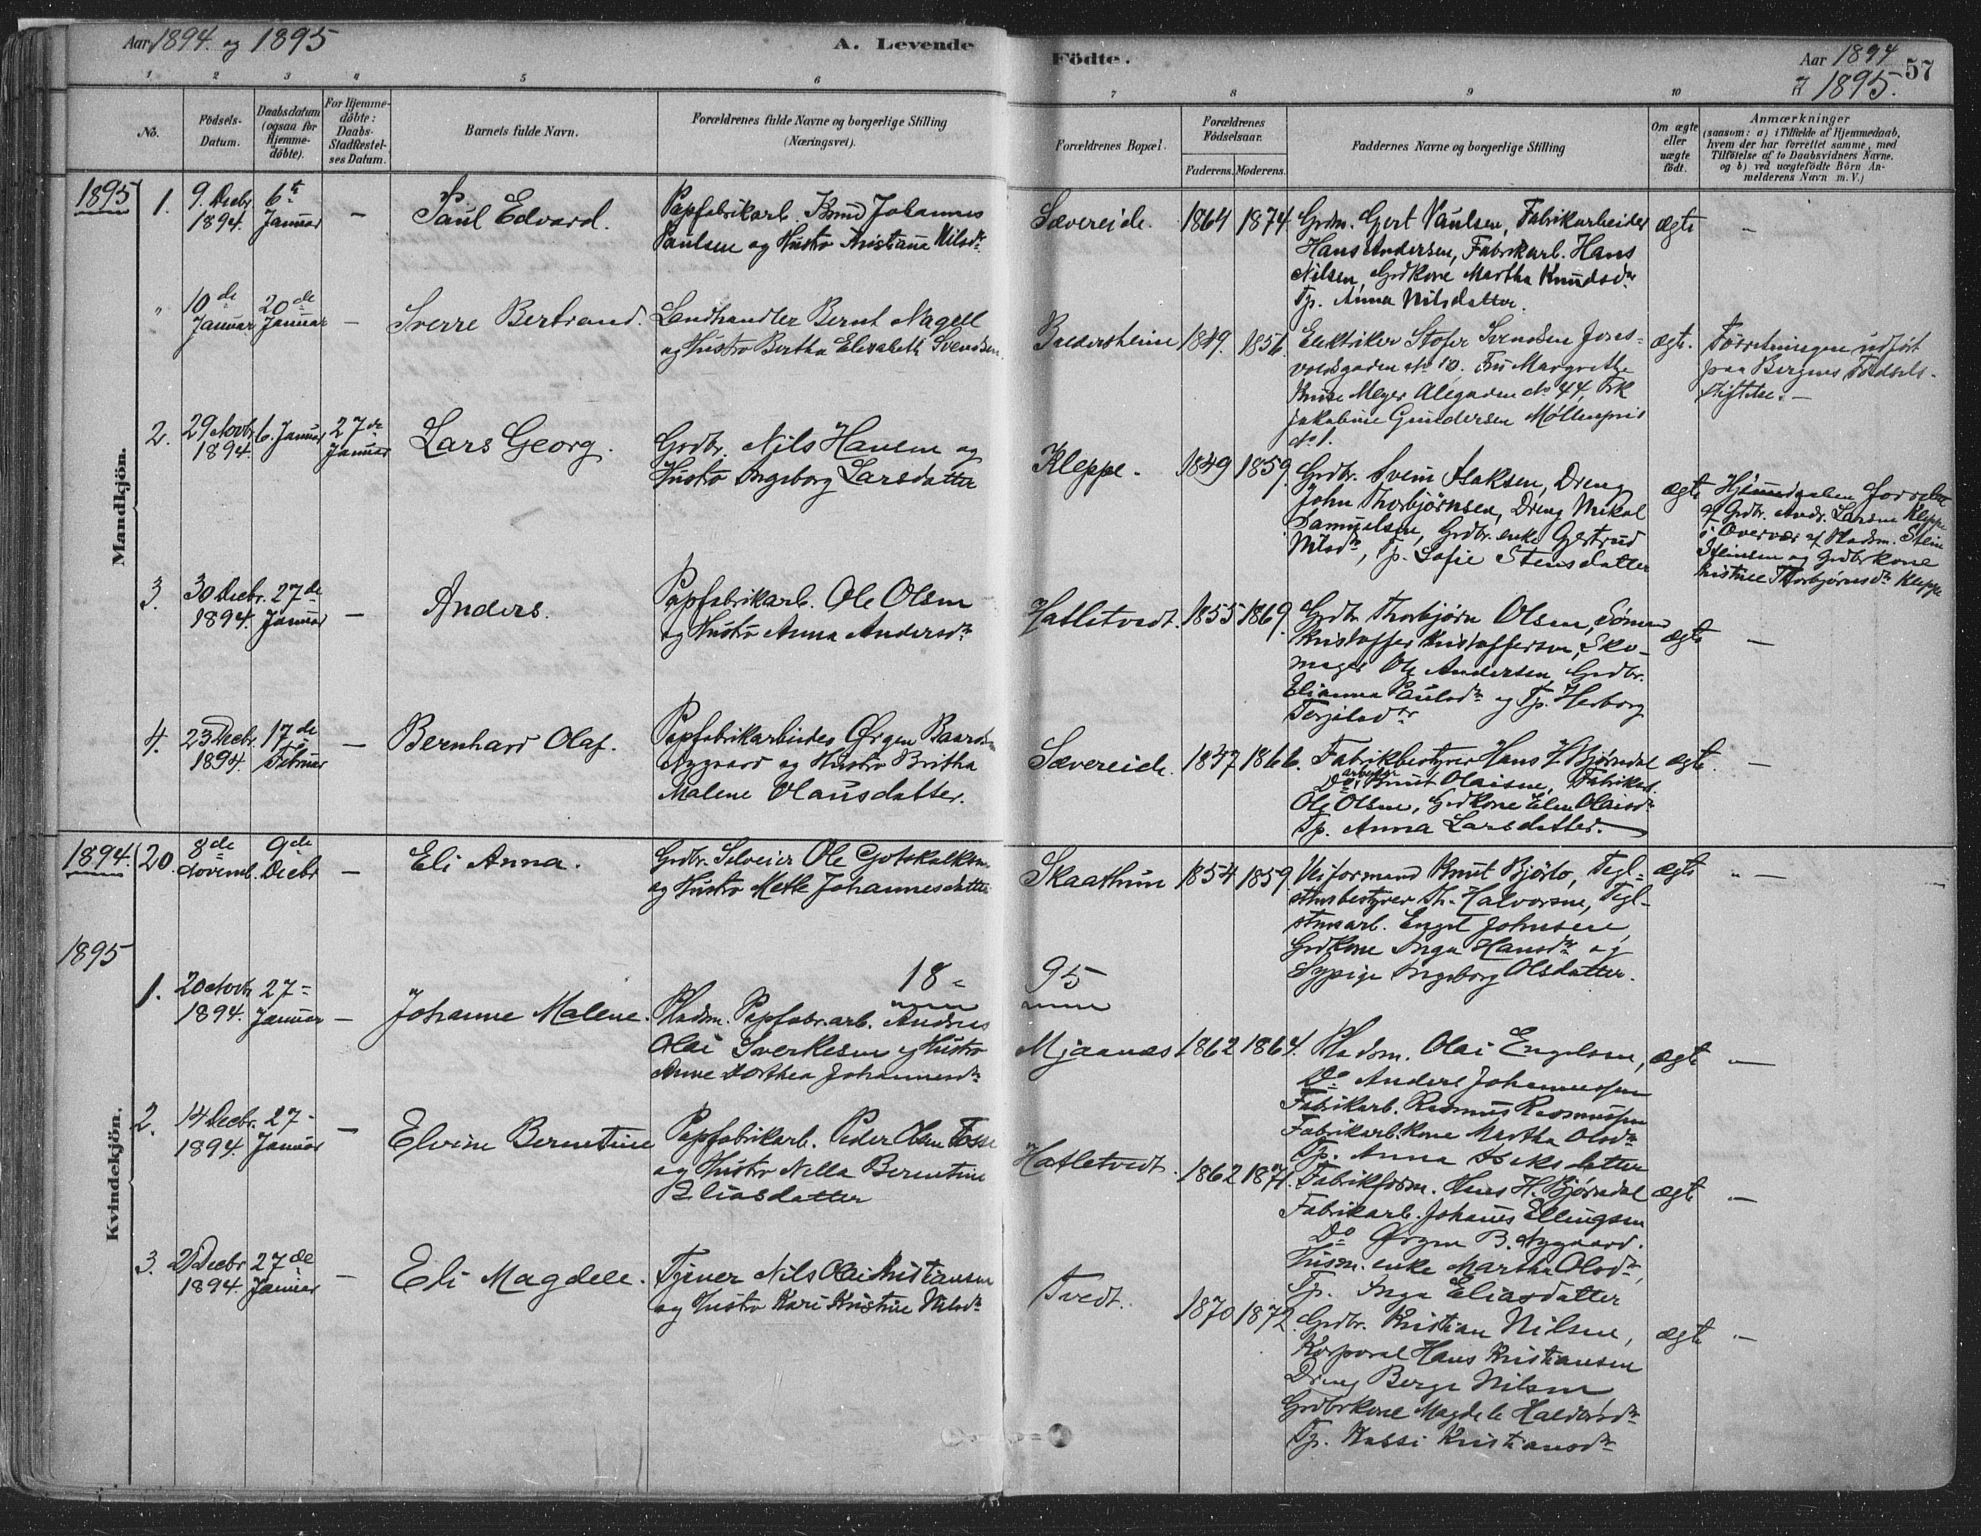 Aar 1894 og 1895
A. Levende
Födte.
Aar 1894
1895. 57
1 2 3 4 5 6 7 8 9 10
No.
Födsels-
Datum.
Daabsdatum
(ogsaa for
Hjemme-
döbte).
For Hjemme-
döbte:
Daabs-
Stadfæstel-
ses Datum.
Barnets fulde Navn.
Forældrenes fulde Navne og borgerlige Stilling
(Næringsvei).
Forældrenes Bopæl.
Forældrenes
Födselsaar.
Faderens. Moderens.
Faddernes Navne og borgerlige Stilling
Om ægte
eller
uægte
födt.
Anmærkninger
(saasom: a) i Tilfælde af Hjemmedaab,
hvem der har forrettet samme, med
Tilföielse af to Daabsvidners Navne.
og b) ved uægtefödte Börn An-
melderens Navn m. V.)
Mandkjön.
1895
1. 9. Decbr. 1894. 6te Januar – Paul Edvard.
Papfabrikarb. Knud Johannes
Paulsen og Hustru Kristiane Nilsdtr
Sævereide. 1864 1874
Grdm. Gjert Paulsen, Fabrikarbeider
Hans Andersen, Fabrikarb. Hans
Nilsen, Grdkone Martha Knudsdtr
Tp. Anna Nilsdatter.
ægte –
" 10de Januar 20de Januar – Sverre Bertrand.
Landhandler Bernt Nagell
og Hustro Bertha Elisabeth Svendsen
Baldersheim 1849. 1856.
Elektriker Stofer Svendsen Jons-
voldsgaden No 10. Fru Margrethe
Meyer Alegaden No 44, Frk
Jakobine Gundersen Møllenpris
No 1.
ægte. Forretningen udført
paa Bergens Fødsels-
stiftelse. –
2. 29 Novbr. 1894. 6. Januar 27de Januar Lars Georg.
Grdbr. Nils Hansen og
Hustro Ingeborg Larsdatter
Kleppe. 1849 1859.
Grdbr. Svein Isaksen, Dreng
John Thorbjørnsen, Dreng Mikal
Samuelsen, Grdbr. enke Gjertrud
Nilsdtr, Tp. Sofie Stensdatter
ægte Hjemmedaaben forrettet
af Grdbr. Andr. Larsen Kleppe
i Overvær af Pladsm. Stein
Steinsen og Grdbrkone
Kristine Thorbjørnsdtr Kleppe
3. 30 Decbr. 1894. 27de Januar – Anders.
Papfabrikarb. Ole Olsen
og Hustro Anna Andersdtr
Hatletvedt. 1855 1869.
Grdbr. Thorbjørn Olsen,
Kristoffer Kristoffersen, Sko-
mager Ole Andersen, Grdbr.
Elianna Paulsdtr og Tp. Herborg
Terjesdtr
ægte –
4. 23 Decbr. 1894. 17de Februar – Bernhard Olaf.
Papfabrikarbeider Ørgen Baardsen
Nygaard og Hustro Britha
Malene Olausdatter.
Sævereide. 1837 1866.
Fabrikbestyrer Hans H. Bjørndal
Do arbeider Knut Olaisen, Fabrikarb.
Ole Olsen, Grdkone Elen Olaisdtr
Tp. Anna Larsdatter.
ægte. –
Kvindekjön.
1894. 20. 8de Novemb. 9de Decbr – Eli Anna.
Grdbr. Selveier Ole Gotskalksen
og Hustro Mette Johannesdatter
Skaathun 1854 1859.
Veiformand Knut Bjørlo, Tegl-
bestyrer Th. Halvorsen, Tegl-
arb. Engel Johnsen,
Grdkone Inga Hansdtr og
Sypige Ingeborg Olsdatter.
ægte " –
1895
18 95
1. 20 Novbr. 1894. 27 Januar – Johanne Malene.
Pladsm. Papfabr.arb. Andreas
Olai Sverkesen og Hustro
Anne Dorthea Johannesdtr
Mjaanæs 1862 1864.
Pladsm. Olai Engelsen,
Do Anders Johannessen
Fabrikarb. Rasmus Rasmussen
Fabrikarb.kone Martha Olsdtr
Tp. Anna Isaksdatter
ægte –
2. 14 Decbr. 1894. 27 Januar – Elvine Berntine
Papfabrikarb. Peder Olsen Fosse
og Hustro Nella Berntine
Eliasdatter
Hatletvedt. 1862 1871.
Fabrikform. Hans H. Bjørndal
Fabrikarb. Johanes Ellingsen
Do Ørgen B. Nygaard.
Husm. enke Martha Olsdtr,
Tp. Inga Eliasdatter
ægte –
3. Decbr 1894. 27de Januar – Eli Magdele.
Tjener Nils Olai Kristiansen
og Hustro Kari Kristine Nilsdtr
Tvedt. 1870 1872.
Grdbr. Kristian Nilsen,
Korporal Hans Kristiansen
Dreng Berge Nilsen
Grdbrkone Magdele Haldorsdtr
Tp. Kristiansdtr
ægte –